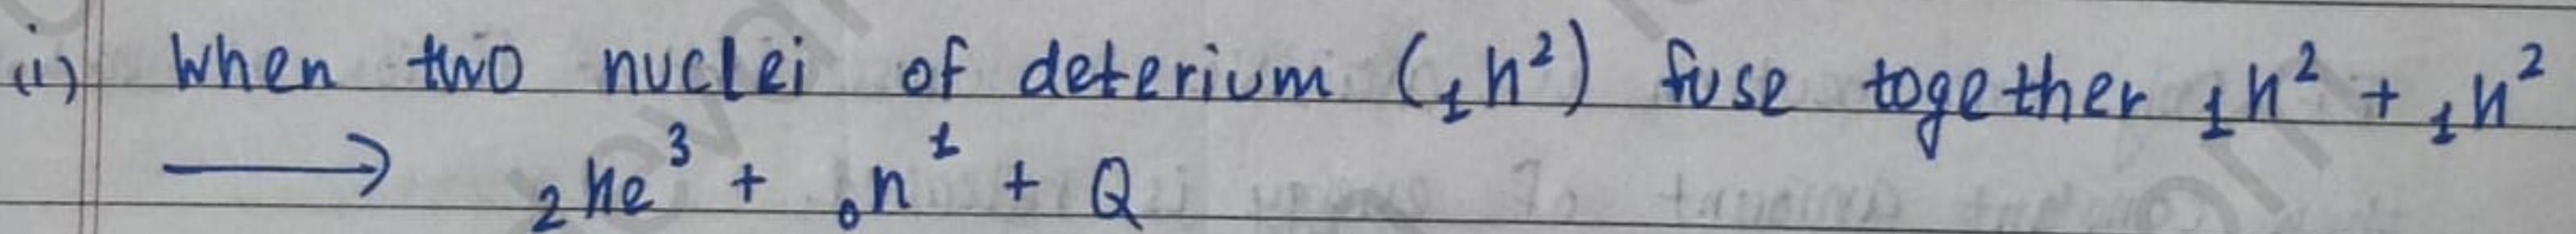 (i) When two nuclei of deterium (₁H²) fuse together ₁H² + ₁H²
⟶ ₂He³ + ₀n¹ + Q